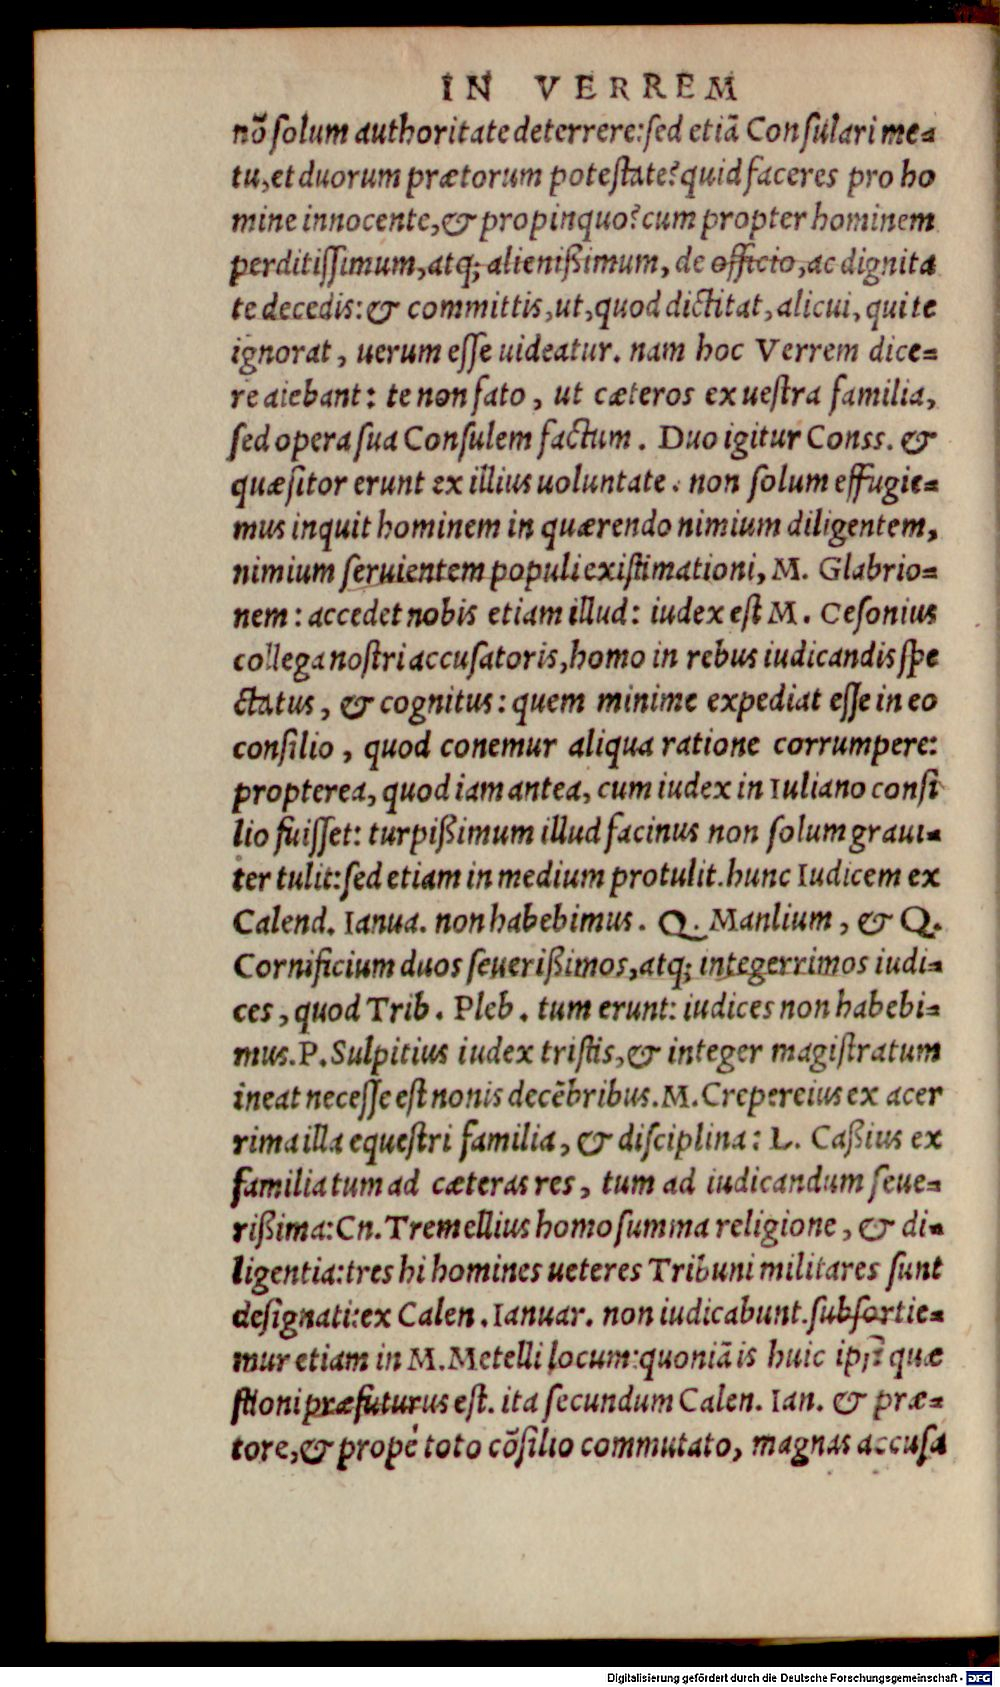 IN VERREM
nõ solum authoritate deterrere: sed etiã Consulari me-
tu, et duorum prætorum potestate? quid faceres pro ho
mine innocente, & propinquo? cum propter hominem
perditissimum, atq; alienißimum, de officio, ac dignita
te decedis: & committis, ut, quod dictitat, alicui, qui te
ignorat, uerum esse uideatur. nam hoc Verrem dice-
re aiebant: te non fato, ut cæteros ex uestra familia,
sed opera sua Consulem factum. Duo igitur Conss. &
quæsitor erunt ex illius uoluntate. non solum effugie-
mus inquit hominem in quærendo nimium diligentem,
nimium seruientem populi existimationi, M. Glabrio-
nem: accedet nobis etiam illud: iudex est M. Cesonius
collega nostri accusatoris, homo in rebus iudicandis spe
ctatus, & cognitus: quem minime expediat esse in eo
consilio, quod conemur aliqua ratione corrumpere:
propterea, quod iam antea, cum iudex in Iuliano consi
lio fuisset: turpißimum illud facinus non solum graui-
ter tulit: sed etiam in medium protulit. hunc Iudicem ex
Calend. Ianua. non habebimus. Q. Manlium, & Q.
Cornificium duos seuerißimos, atq; integerrimos iudi-
ces, quod Trib. Pleb. tum erunt: iudices non habebi-
mus. P. Sulpitius iudex tristis, & integer magistratum
ineat necesse est nonis decẽbribus. M. Crepereius ex acer
rima illa equestri familia, & disciplina: L. Caßius ex
familia tum ad cæteras res, tum ad iudicandum seue-
rißima: Cn. Tremellius homo summa religione, & di-
ligentia: tres hi homines ueteres Tribuni militares sunt
designati: ex Calen. Ianuar. non iudicabunt. subsortie-
mur etiam in M. Metelli locum: quoniã is huic ipsi quæ
stioni præfuturus est. ita secundum Calen. Ian. & præ-
tore, & propè toto cõsilio commutato, magnas accusa
Digitalisierung gefördert durch die Deutsche Forschungsgemeinschaft - DFG